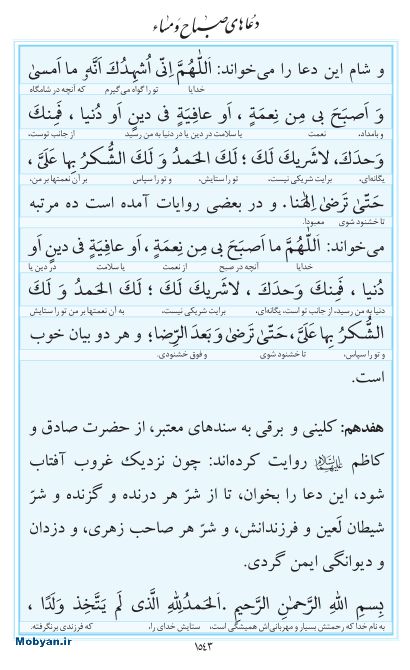 دعاهای صباح و مساء
و شام این دعا را می‌خواند: اَللّٰهُمَّ اِنّی اُشهِدُكَ اَنَّهُ ما اَمسیٰ
خدایا تو را گواه می‌گیرم که آنچه در شامگاه
وَ اَصبَحَ بی مِن نِعمَةٍ ، اَو عافِیَةٍ فی دینٍ اَو دُنیا ، فَمِنكَ
و بامداد، نعمت یا سلامت در دین یا در دنیا به من رسید از جانب توست،
وَحدَكَ، لاشَریكَ لَكَ ؛ لَكَ الحَمدُ وَ لَكَ الشُّكرُ بِها عَلَیَّ ،
یگانه‌ای، برایت شریکی نیست، تو را ستایش، و تو را سپاس بر آن نعمتها بر من،
حَتّیٰ تَرضیٰ اِلٰهَنا . و در بعضی روایات آمده است ده مرتبه
تا خشنود شوی معبودا.
می‌خواند: اَللّٰهُمَّ ما اَصبَحَ بی مِن نِعمَةٍ ، اَو عافِیَةٍ فی دینٍ اَو
خدایا آنچه در صبح از نعمت یا سلامت در دین یا
دُنیا ، فَمِنكَ وَحدَكَ ، لاشَریكَ لَكَ ؛ لَكَ الحَمدُ وَ لَكَ
دنیا به من رسید، از جانب تو است، یگانه‌ای، برایت شریکی نیست، به آن نعمتها بر من تو را ستایش
الشُّكرُ بِها عَلَیَّ ، حَتّیٰ تَرضیٰ وَ بَعدَ الرِّضا؛ و هر دو بیان خوب
و تو را سپاس، تا خشنود شوی و فوق خشنودی.
است.
هفدهم: کلینی و برقی به سندهای معتبر، از حضرت صادق و
کاظم علیهما السلام روایت کرده‌اند: چون نزدیک غروب آفتاب
شود، این دعا را بخوان، تا از شرّ هر درنده و گزنده و شرّ
شیطان لَعین و فرزندانش، و شرّ هر صاحب زهری، و دزدان
و دیوانگی ایمن گردی.
بِسمِ اللهِ الرَّحمٰنِ الرَّحیمِ . اَلحَمدُلِلّٰهِ الَّذی لَم یَتَّخِذ وَلَدًا ،
به نام خدا که رحمتش بسیار و مهربانی‌اش همیشگی است، ستایش خدای را، که فرزندی برنگرفته.
۱۵۴۳
Mobyan.ir